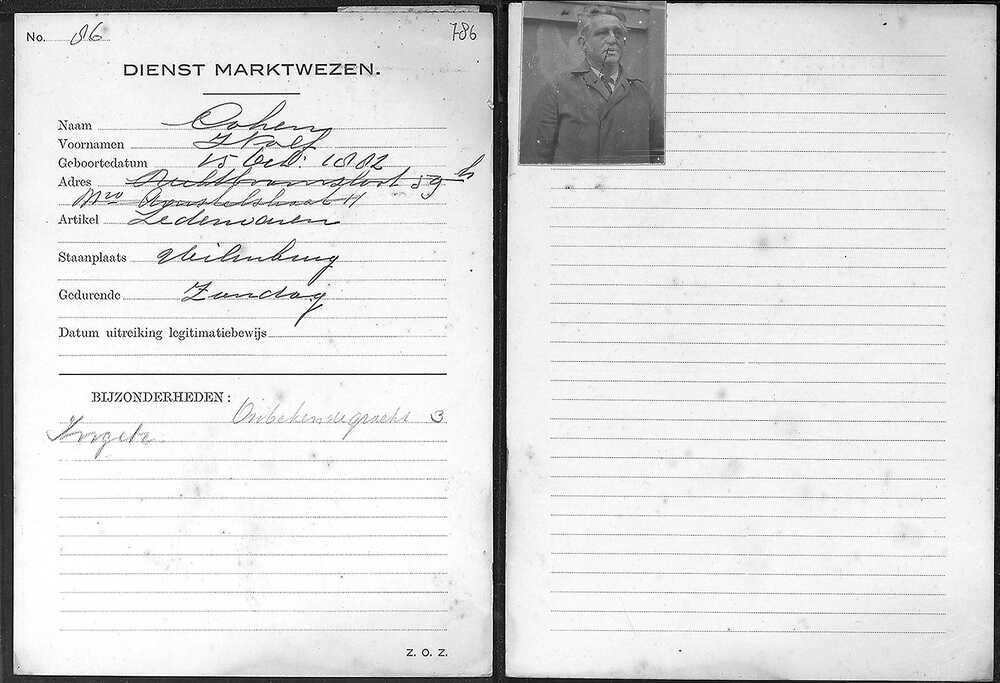 No. 86 786
DIENST MARKTWEZEN.
Naam Cohen
Voornamen Wolf
Geboortedatum 15 Oct. 1882
Adres Rechtboomsloot 59 h
Amstelstraat 11
Artikel Lederwaren
Staanplaats Uilenburg
Gedurende Zondag
Datum uitreiking legitimatiebewijs
BIJZONDERHEDEN:
Onbekendegracht 3
Z. O. Z.